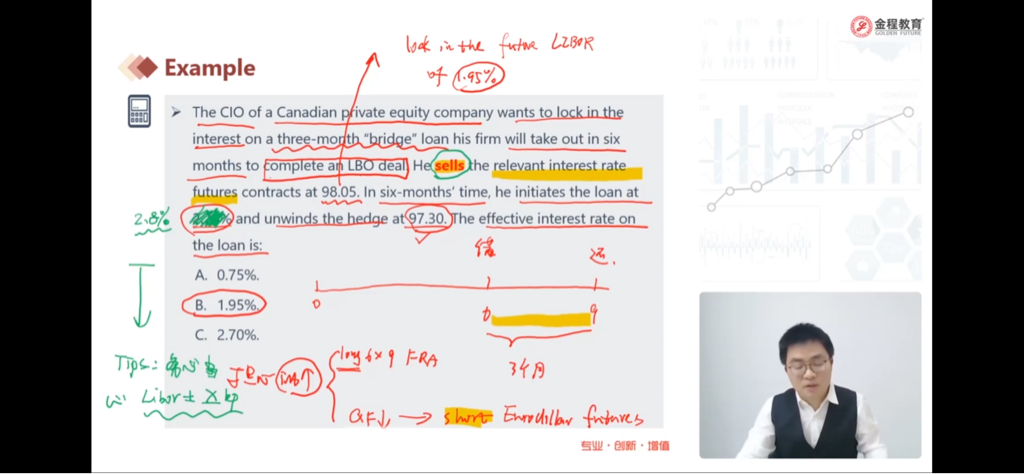 金程教育
GOLDEN FUTURE
lock in the future LIBOR
of 1.95%
Example
The CIO of a Canadian private equity company wants to lock in the
interest on a three-month "bridge" loan his firm will take out in six
months to complete an LBO deal. He sells the relevant interest rate
futures contracts at 98.05. In six-months' time, he initiates the loan at
2.8% % and unwinds the hedge at 97.30. The effective interest rate on
the loan is:
A. 0.75%.
B. 1.95%.
C. 2.70%.
借 还.
0 6 9
3个月
Tips:
Libor ± X bp
long 6×9 FRA
QF↓ → short Eurodollar futures
专业·创新·增值